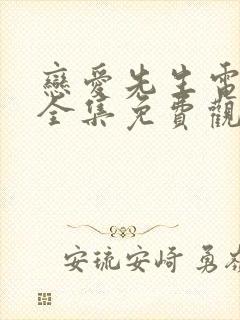 戀愛先生電
全集免費觀
安琉安崎 勇